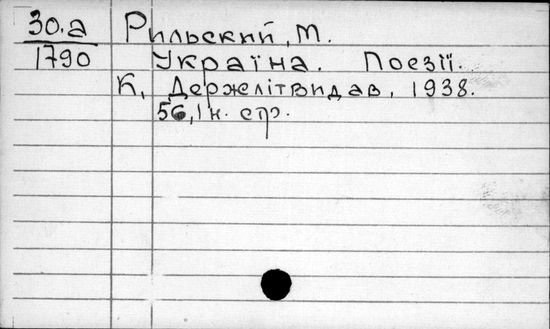 30.а Рильский, М.
1790 Україна. Поезії.
К, Держлітвидав, 1938.
56, 1 н. стр.